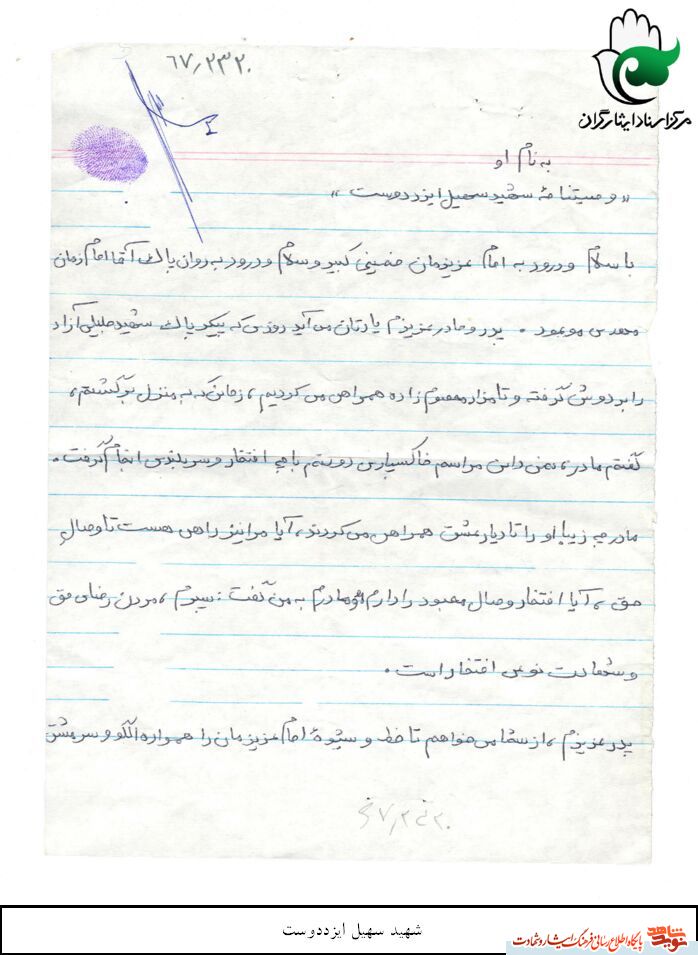 ۶۷٫۲۳۲۰
مرکز اسناد ایثارگران
به نام او
«وصیتنامهٔ شهید سهیل ایزددوست»
با سلام و درود به امام عزیزمان خمینی کبیر و سلام و درود به روان پاک آقا امام زمان
مهدی موعود. پدر و مادر عزیزم یادتان می‌آید روزی که پیکر پاک شهید جلیلی آزاد
را بر دوش گرفته و تا مزار معصوم زاده همراهی می‌کردیم، زمانی که به منزل برگشتم،
گفتم مادر، نمی‌دانی مراسم خاکسپاری دوستم با چه افتخار و سربلندی انجام گرفت.
مادر چه زیبا او را تا دیار عشق همراهی می‌کردند، آیا مرا نیز راهی هست تا وصال
حق، آیا افتخار وصال معبود را دارم مادرم به من گفت: پسرم، مردن رضای حق
و شهادت نوعی افتخار است.
پدر عزیزم، از شما می‌خواهم تا خط و شیوهٔ امام عزیزمان را همواره الگو و سرمشق
شهید سهیل ایزددوست
نوید شاهد پایگاه اطلاع رسانی فرهنگ ایثار و شهادت